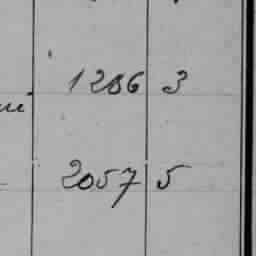 1286 3
2057 5